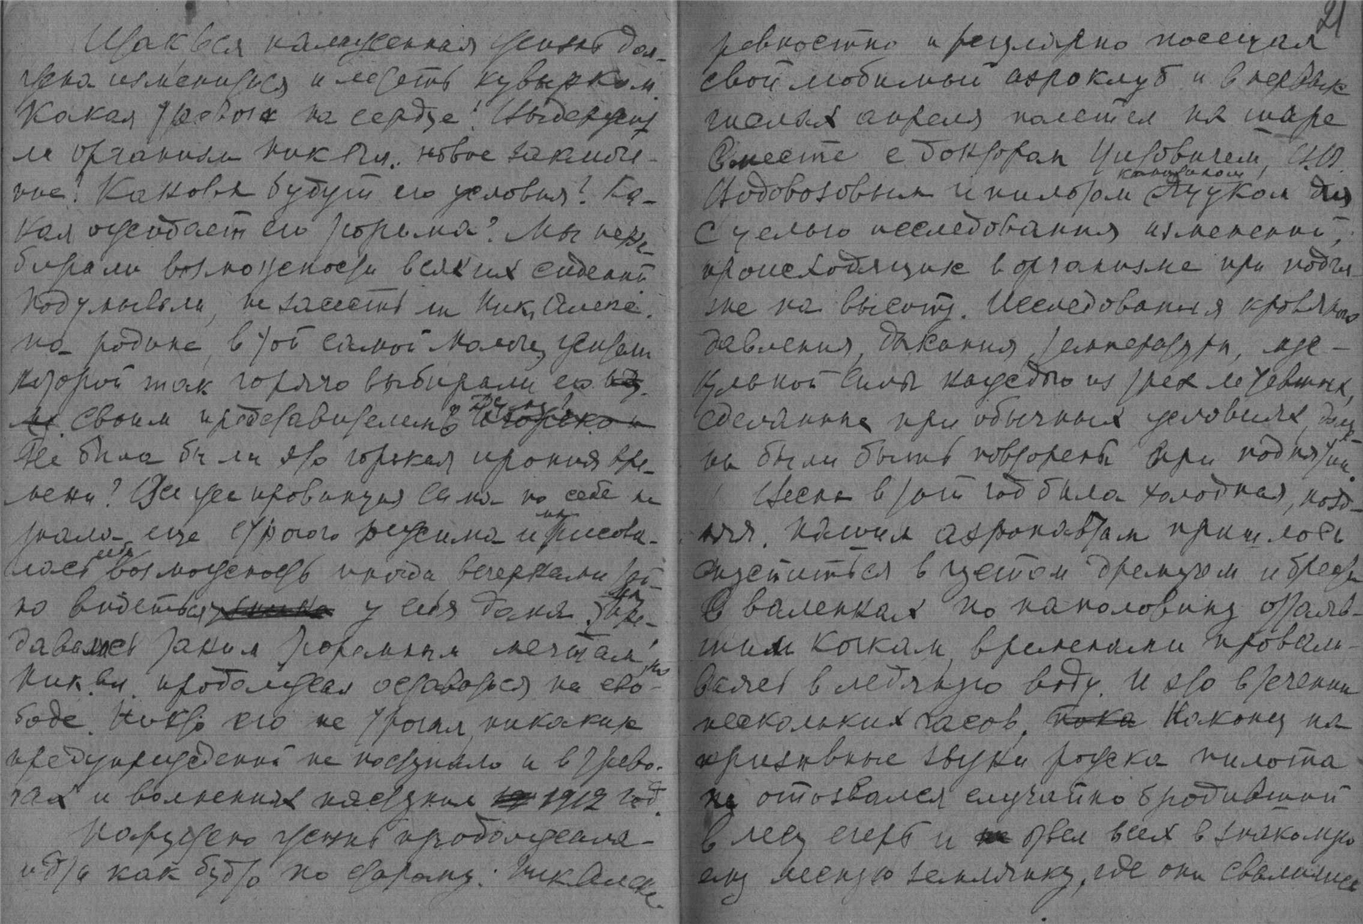 И так вся налаженная жизнь дол-
жна измениться и лететь кувырком.
Какая тревога на сердце! Выдержит
ли организм Ник. Ал. новое заключе-
ние? Каковы будут его условия? Ка-
кая ожидает его тюрьма? Мы пере-
бирали возможности всяких сидений
подумывали, не засесть ли Ник. Алекс.
на родине, в той самой
которой так горячо выбирали его
своим представителем в
Не была бы ли это горькая ирония вре-
мени? Все же провинция сама по себе не
знала еще строгого режима и рисова-
лась возможность иногда вечерками
но видеться у себя дома
давались таким тюремным мечтам, но
Ник. Ал. продолжал оставаться на сво-
боде. Никто его не трогал, никаких
предупреждений не поступало и в трево-
гах и волнениях наступил 1912 год.
Наружно жизнь продолжала
идти как будто по старому: Ник Алекс.
21
ревностно и регулярно посещал
свой любимый аэроклуб и в первых
числах апреля полетел на шаре
вместе с доктором
и пилотом для
с целью исследования изменений,
происходящих в организме при подъе-
ме на высоту. Исследования кровяного
давления, дыхания, температуры, мус-
кульной силы каждого из трех летевших,
сделанные при обычных условиях, долж-
ны были быть повторены при поднятии.
Весна в этот год была холодная, позд-
няя. Нашим аэронавтам пришлось
опуститься в густом дремучем и брести
в валенках по наполовину оттаяв-
шим кочкам, временами провали-
ваясь в ледяную воду. И это в течении
нескольких часов, пока Наконец на
призывные звуки рожка пилота
отозвался случайно бродивший
в лесу егерь и отвел всех в знакомую
ему лесную землянку, где они свалились